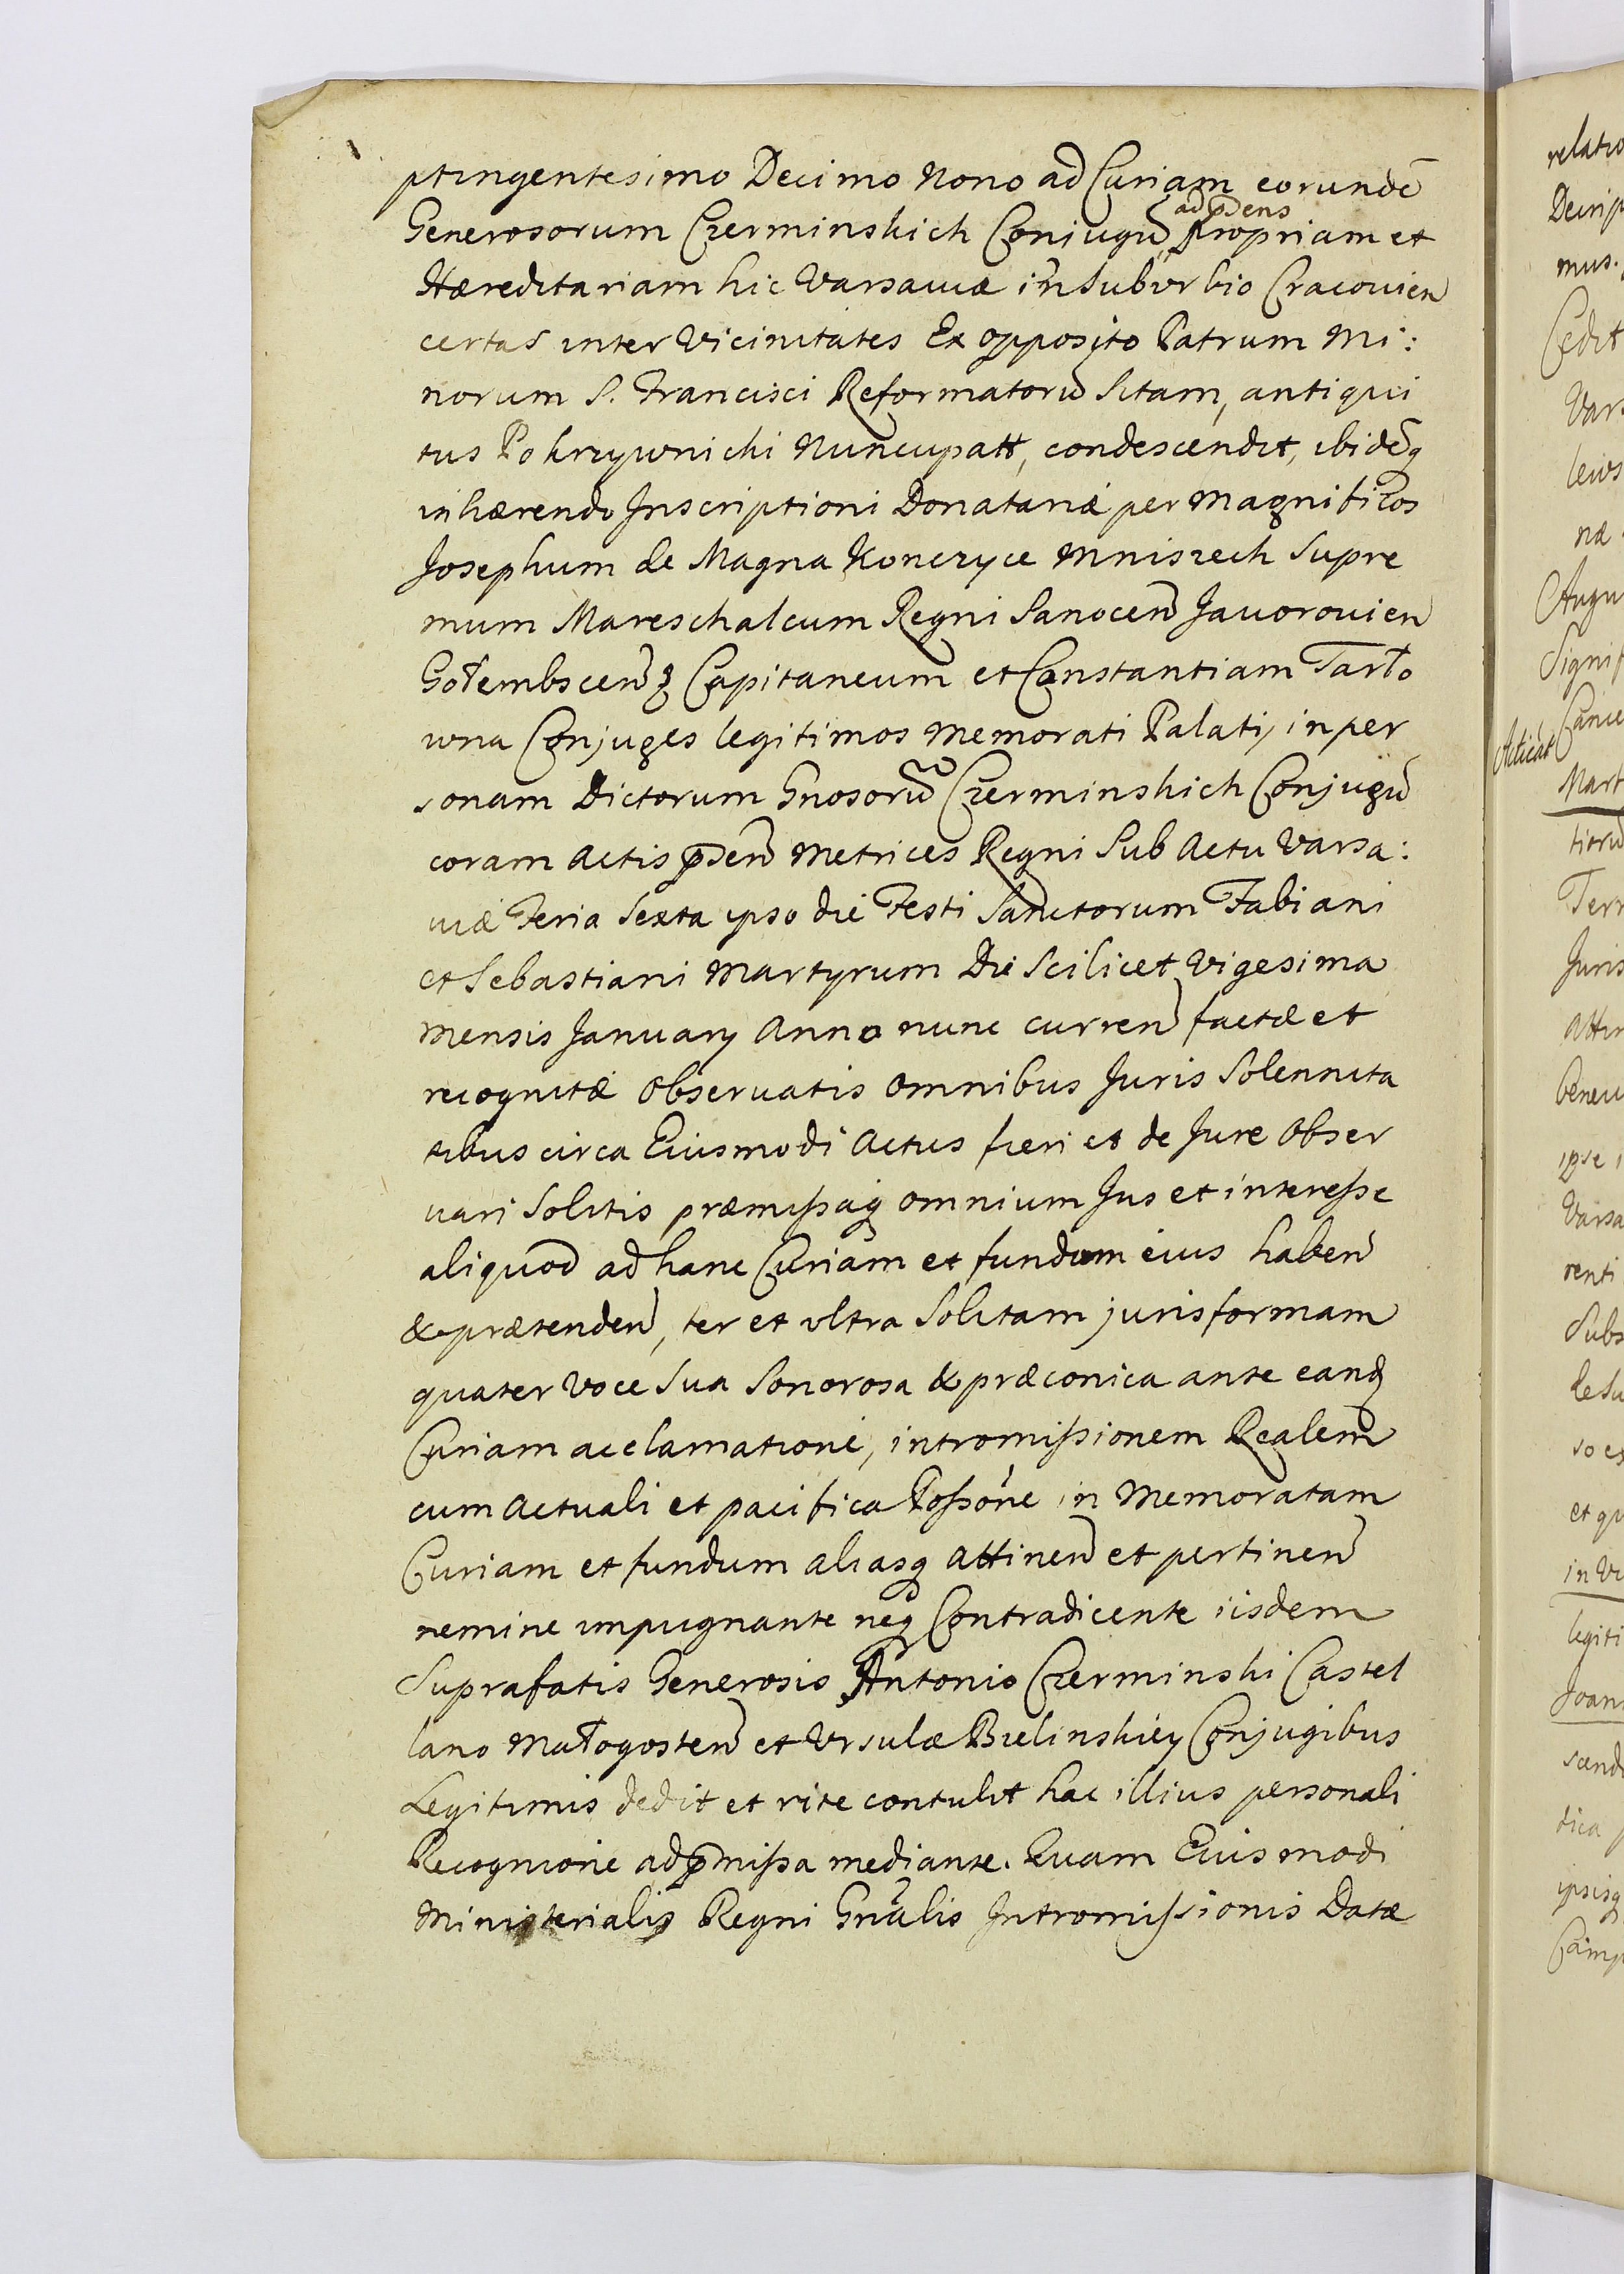 ptingentesimo Decimo Nono ad Curiam eorundē
ad p̄sens
Generosorum Czerminskich Coniugū propriam et
Hæreditariam hic Varsaviæ in suburbio Cracovien
certas inter Vicinitates Ex opposito Patrum Mi:
norum S. Francisci Reformatorū sitam, antiqui
tus Pokrzywnicki Nuncupatt, condescendit, ibidēq
inhærendo Inscriptioni Donatariæ per Magnificos
Josephum de Magna Konczyce Mniszech Supre
mum Mareschalcum Regni Sanocen Javorovien
Gołembscenq Capitaneum et Constantiam Tarło
wna Conjuges legitimos Memorati Palatij in per
sonam Dictorum Gnosorū Czerminskich Conjugū
coram Actis p̄sen Metrices Regni Sub Actu Varsa:
viæ Feria Sexta ipso die Festi Sanctorum Fabiani
et Sebastiani Martyrum Die Scilicet Vigesima
Mensis January Anno nunc curren factæ et
recognitæ Observatis Omnibus Juris Solennita
tibus circa Eiusmodi Actus fieri et de Jure Obser
vari Solitis præmissaq omnium Jus et interesse
aliquod ad hanc Curiam et fundum eius haben
& prætenden, ter et ultra Solitam juris formam
quater voce Sua Sonorosa & præconica ante eand
Curiam acclamatione, intromissionem Realem
cum Actuali et pacifica Possone in Memoratam
Curiam et fundum aliasq Attinen et pertinen
nemine impugnante neq Contradicente iisdem
Suprafatis Generosis Antonio Czerminski Castel
lano Małogosten et Ursulæ Bielinskiey Conjugibus
Legitimis dedit et rite contulit hac illius personali
Recognione ad p̄missa mediante. Quam Eiusmodi
Ministerialis Regni Gnalis Intromissionis Datæ
relatio
mus.
Cedit
næ
Signif
Acticat
Mart
Terr
Juris
ipse i
Varsa
renti
Subs
et qu
legiti
Joan